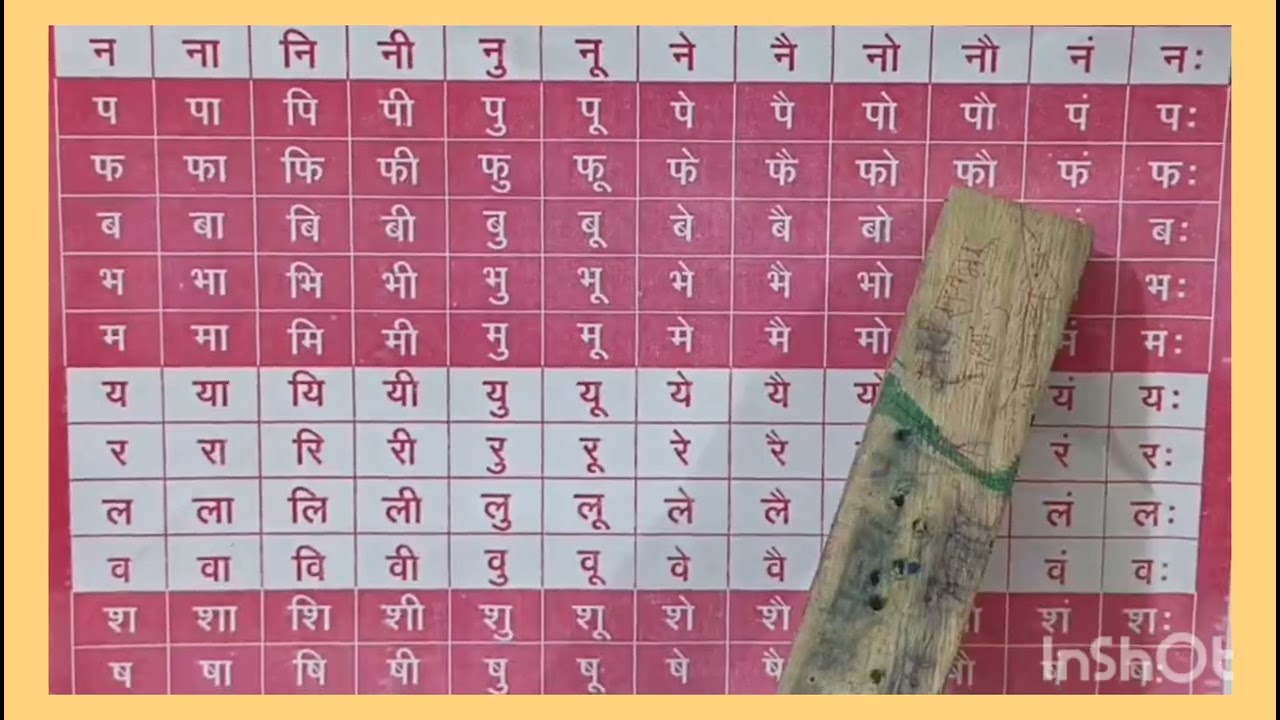 न ना नि नी नु नू ने नै नो नौ नं नः
प पा पि पी पु पू पे पै पो पौ पं पः
फ फा फि फी फु फू फे फै फो फौ फं फः
ब बा बि बी बु बू बे बै बो बः
भ भा भि भी भु भू भे भै भो भः
म मा मि मी मु मू मे मै मो मं मः
य या यि यी यु यू ये यै यो यं यः
र रा रि री रु रू रे रै रं रः
ल ला लि ली लु लू ले लै लं लः
व वा वि वी वु वू वे वै वं वः
श शा शि शी शु शू शे शै शं शः
ष षा षि षी षु षू षे षै
InShOt